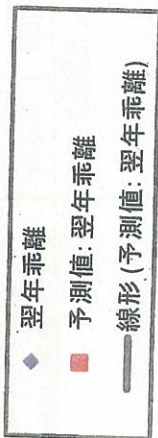 翌年乖離
予測値: 翌年乖離
線形 (予測値: 翌年乖離)